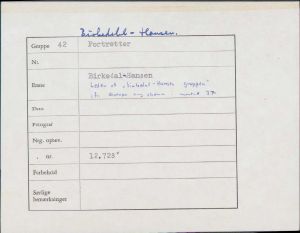 Birkedal-Hansen.
Gruppe 42 Portretter
Nr.
Emne Birkedal-Hansen
Leder af "Birkedal-Hansen gruppen"
Dato
Fotograf
Neg. opbev.
" nr. 12,728"
Forbehold
Særlige
bemærkninger